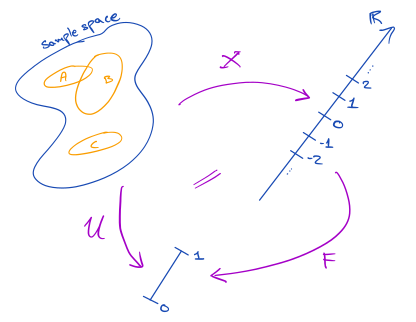 Sample space
A
B
C
X
ℝ
2
1
0
-1
-2
U
F
1
0